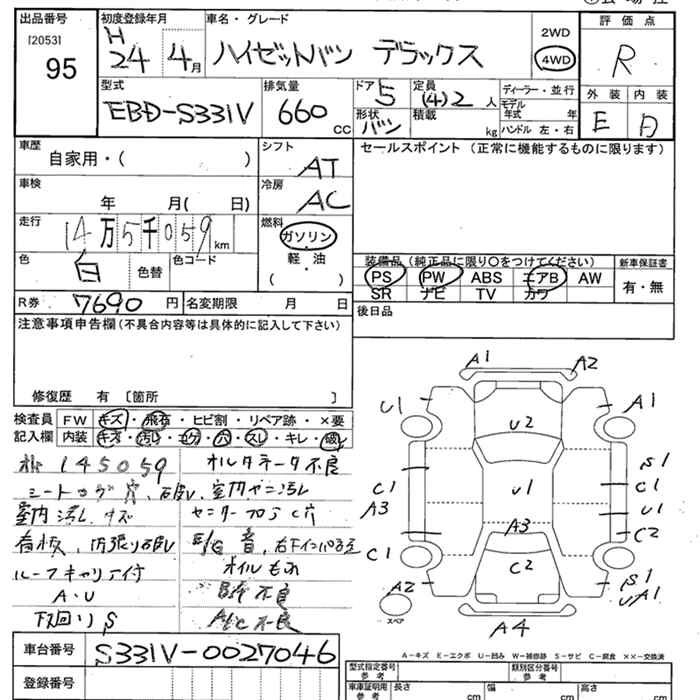 出品番号 初度登録年月 車名・グレード 評価点
[2053] H 2WD
95 24 4月 ハイゼットバン デラックス 4WD R
型式 排気量 ドア 5 定員 (4)2 人 ディーラー・並行 外装 内装
EBD-S331V 660 cc 形状 バン 積載 kg モデル年式 年 E D
ハンドル 左・右
車歴 自家用・( ) シフト AT セールスポイント (正常に機能するものに限ります)
車検 年 月( 日) 冷房 AC
走行 14万5千059km 燃料 ガソリン
色 白 色替 色コード 軽・油 装備品 (純正品に限り○をつけてください) 新車保証書
( ) PS PW ABS エアB AW 有・無
R券 7690円 名変期限 月 日 SR ナビ TV カワ
注意事項申告欄 (不具合内容等は具体的に記入して下さい) 後日品
修復歴 有 [箇所 ]
検査員 FW キズ・飛石・ヒビ割・リペア跡・×要
記入欄 内装 キズ・汚レ・コゲ・穴・スレ・キレ・破レ
145059 オルタネータ不良
室内汚レ キズ
看板、内張り破レ E/G 音
ルーフキャリア付 オイルもれ
A・U 不良
下回りS A/C不良
車台番号 S331V-0027046
登録番号
A1 A2
U1 A1
U2
S1
C1 U1 C1
A3 U1
A3 C2
C1 C2
A2 S1
UA1
スペア
A4
A-キズ E-エクボ U-凹み W-補修跡 S-サビ C-腐食 ××-交換済
型式指定番号 参考 類別区分番号 参考
車庫証明用 参考 長さ cm 幅 cm 高さ cm